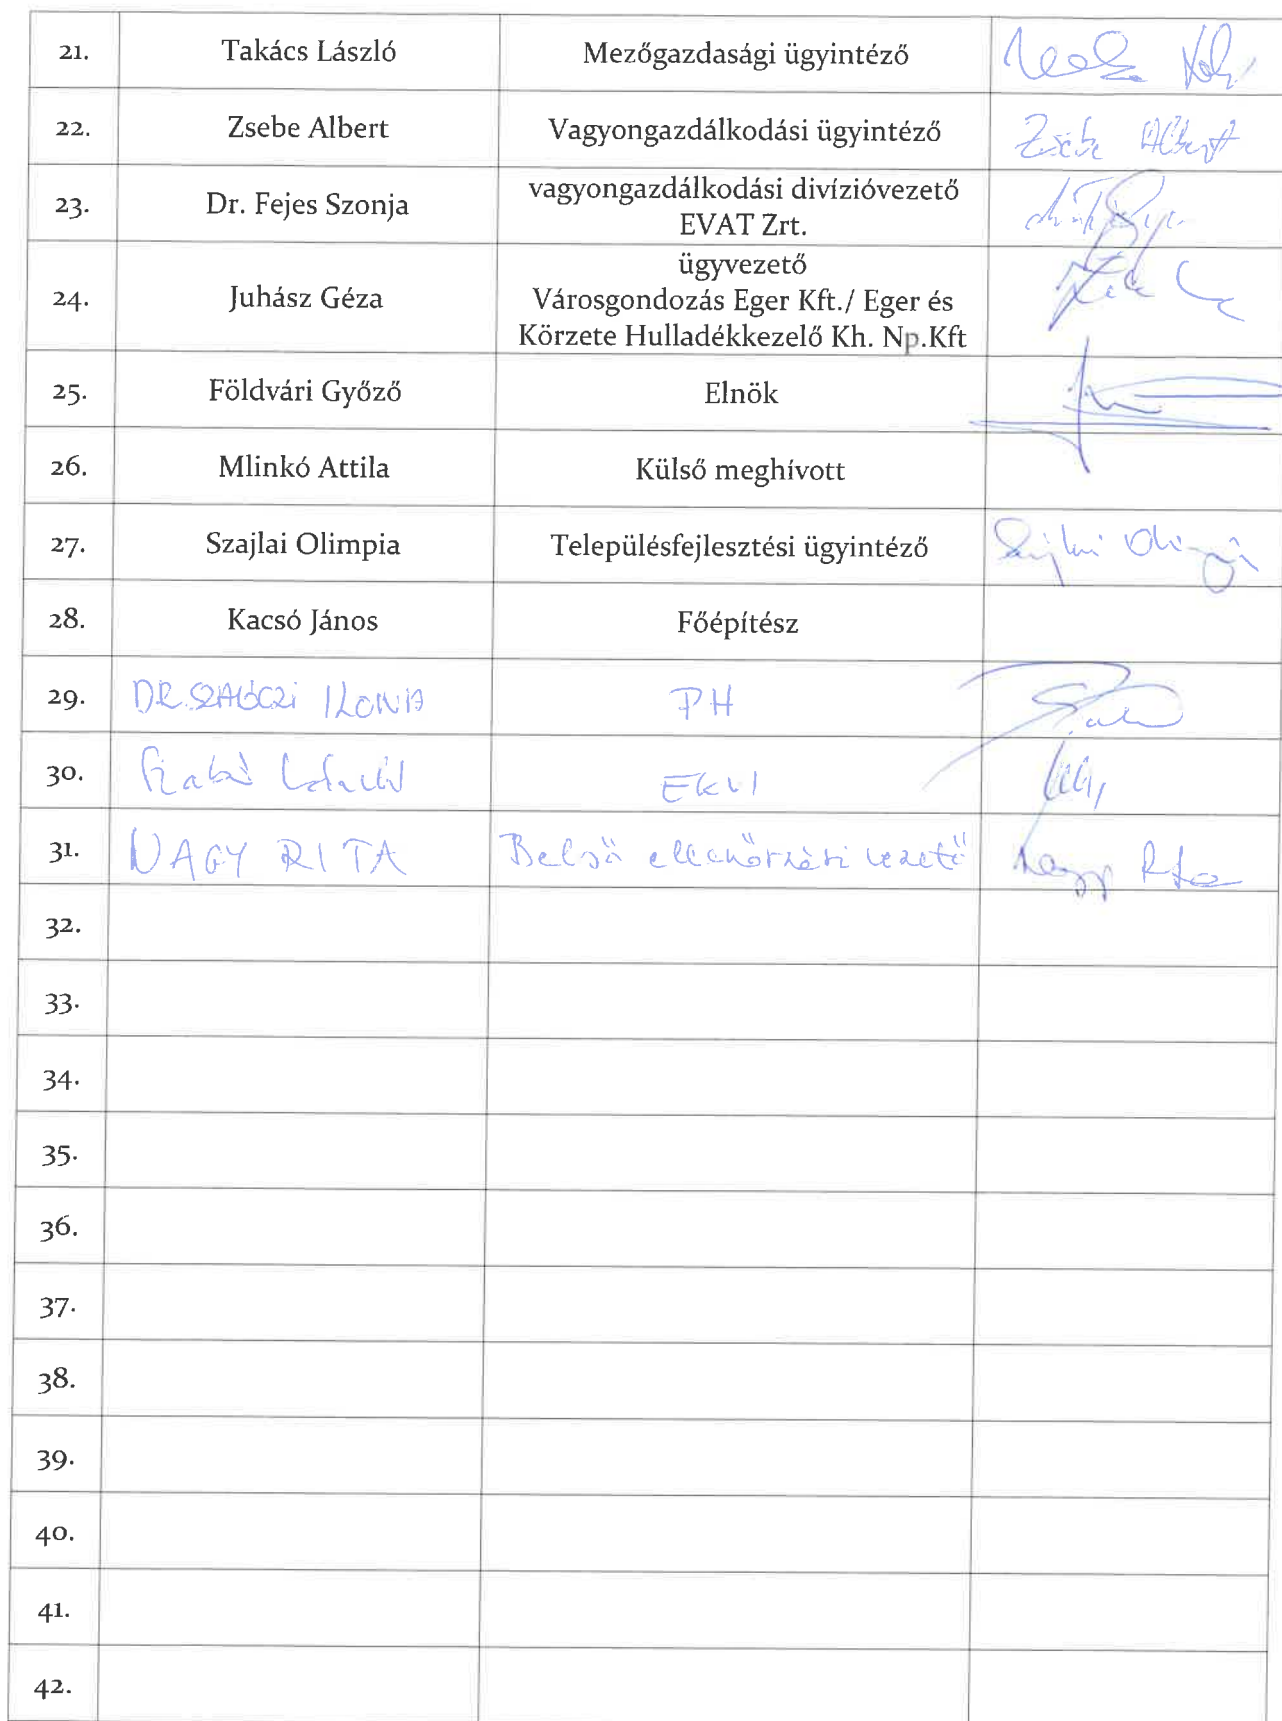 21. Takács László Mezőgazdasági ügyintéző
22. Zsebe Albert Vagyongazdálkodási ügyintéző Zsebe Albert
23. Dr. Fejes Szonja vagyongazdálkodási divízióvezető
EVAT Zrt.
24. Juhász Géza ügyvezető
Városgondozás Eger Kft./ Eger és
Körzete Hulladékkezelő Kh. Np.Kft
25. Földvári Győző Elnök
26. Mlinkó Attila Külső meghívott
27. Szajlai Olimpia Településfejlesztési ügyintéző
28. Kacsó János Főépítész
29. DR. ILONA PH
30. Szabó EKVI
31. NAGY RITA Belső ellenőrzési vezető Nagy Rita
32.
33.
34.
35.
36.
37.
38.
39.
40.
41.
42.